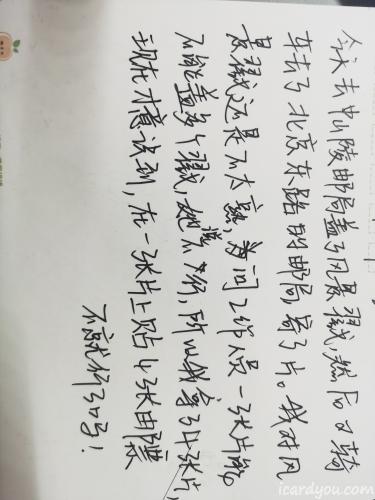 今天去中山陵邮局盖了风景戳,然后又骑
车去了北京东路的邮局,寄了片。我对风
景戳还是不太懂,问工作人员一张片能
不能盖多个戳,她说不行,所以我拿了4张片,
现在才意识到,在一张片上贴4张邮票
不就行了吗!
icardyou.com